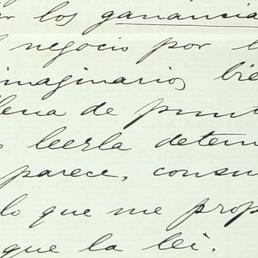 r los ganancia
l negocio por l
imaginario, bie
llena de punt
s leerla deten
parece, consu
lo que me prop
que la lei.